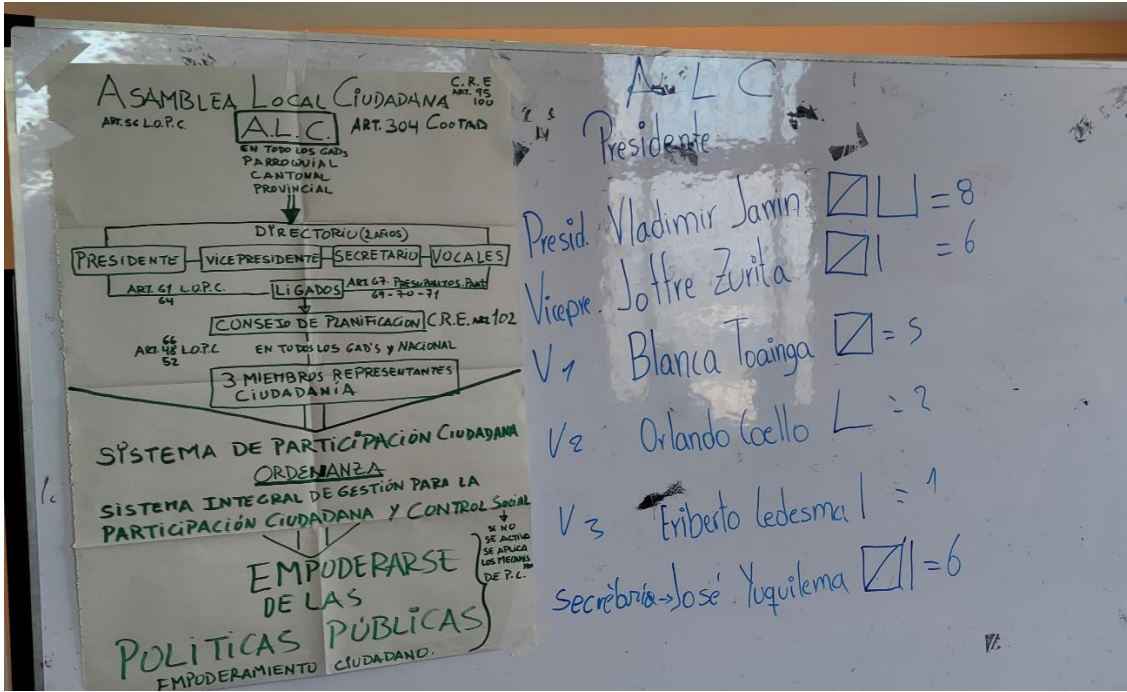 ASAMBLEA LOCAL CIUDADANA
C.R.E
ART. 95
100
ART. 56 L.O.P.C.
A.L.C.
ART. 304 COOTAD
EN TODO LOS GADs
PARROQUIAL
CANTONAL
PROVINCIAL
DIRECTORIO (2 AÑOS)
PRESIDENTE VICEPRESIDENTE SECRETARIO VOCALES
ART. 61 L.O.P.C.
64
LIGADOS
ART 67. PRESUPUESTOS. PART
69-70-71
CONSEJO DE PLANIFICACION C.R.E. ART 102
ART. 66 48 52 L.O.P.C
EN TODOS LOS GAD'S y NACIONAL
3 MIEMBROS REPRESENTANTES
CIUDADANIA
SISTEMA DE PARTICIPACIÓN CIUDADANA
ORDENANZA
SISTEMA INTEGRAL DE GESTIÓN PARA LA
PARTICIPACIÓN CIUDADANA Y CONTROL Social
SI NO
SE ACTIVA
SE APLICA
LOS MECANIS
DE P.C.
EMPODERARSE
DE LAS
POLÍTICAS PÚBLICAS
EMPODERAMIENTO CIUDADANO.
A L C
Presidente
Presid. Vladimir Jarrin = 8
Vicepre. Joffre Zurita = 6
V1 Blanca Toainga = 5
V2 Orlando Coello = 2
V3 Eriberto Ledesma = 1
Secretaria→José Yuquilema = 6